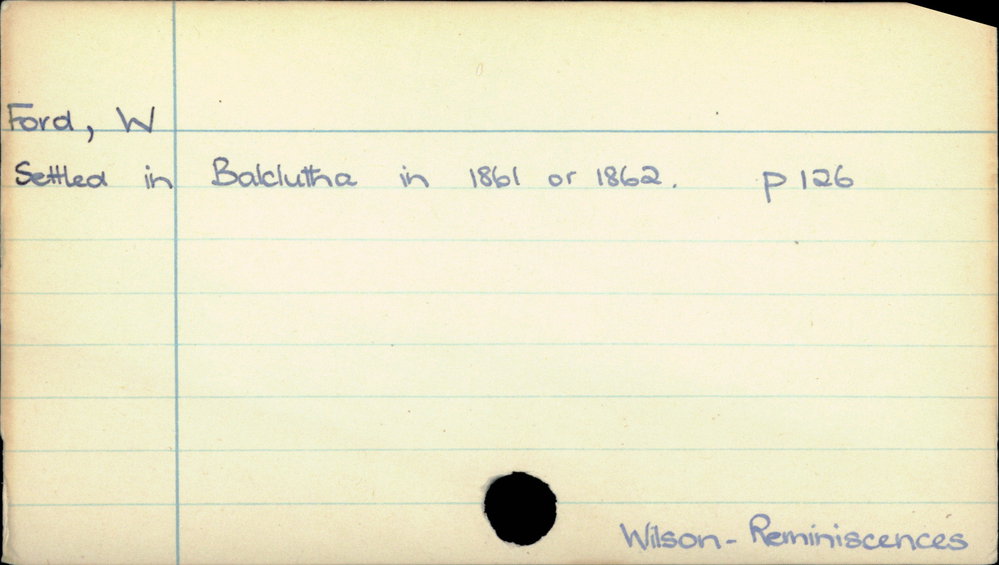 Ford, W
Settled in Balclutha in 1861 or 1862. p 126
Wilson - Reminiscences